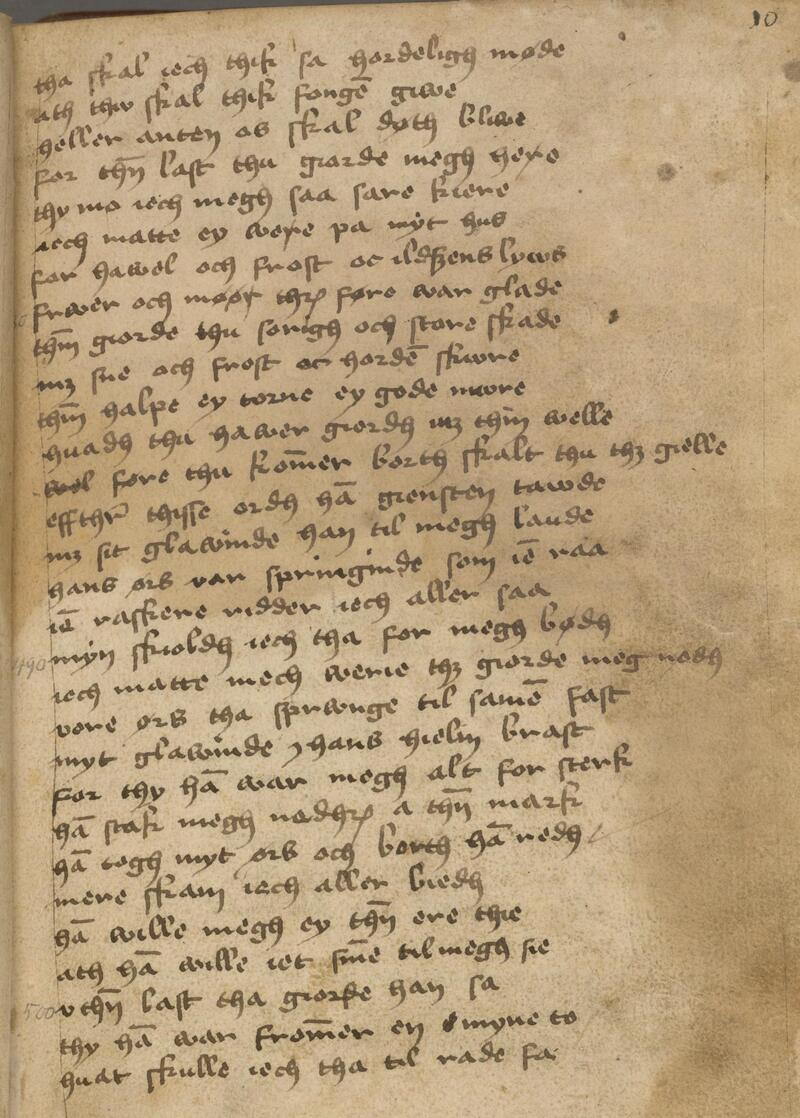 10
tha skal iech thik sa hordeligh møde
ath thw skal thik fongē giwe
heller anten os skal døth bliwe
for thn̄ last thu giorde megh here
thy mo iech megh saa sare kiere
iech matte ey were pa myt hus
for hawel och frost oc ildzens lyws
frwer och møør ther føre war glade
thm̄ giorde thu sorigh och store skade
mz sne och frost oc hordē skwre
thm̄ halpe ey torne ey gode mwre
huadh thu hawer giordh mz thin welle
wel føre thu kom̄er borth skalt thu thz gielle
effther thisse ordh hā giensten tawde
mz sit glawinde han til megh lande
hans ørs var springinde som iē raa
iē raskere ridder iech aller saa
490 myn skioldh iech tha for megh bødh
iech matte mech werie thz giorde meg nødh
vore ørs tha sprwnge til samē fast
myt glawinde i hans hielm brast
for thy hā war megh alt for sterk
hā stak megh nedher a thn̄ mark
hā togh myt ørs och borth hā redh
mere skam iech aller biedh
hā wille megh ey thn̄ ere thie
ath hā wille iet sin̄e til megh sie
500 vthn̄ last tha giorde han sa
thy hā war from̄er en myne to
huat skulle iech tha til rade fa